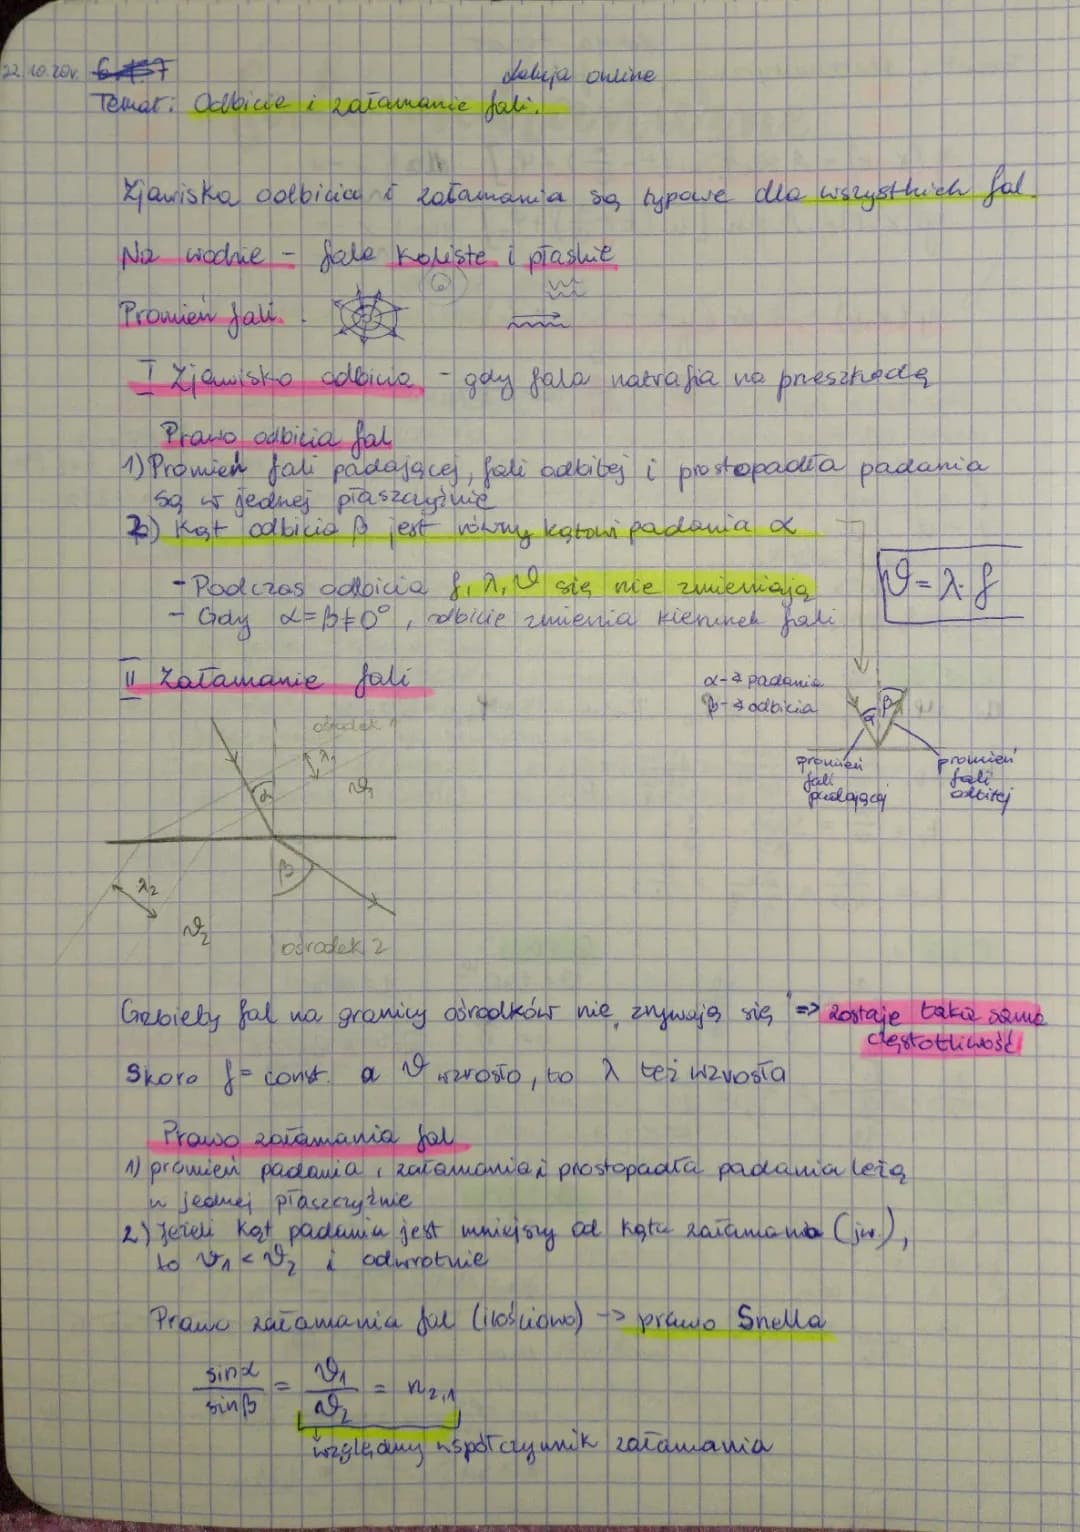 22.10.20r.
lekcja online
Temat: Odbicie i załamanie fali.
Zjawiska odbicia i załamania są typowe dla wszystkich fal.
Na wodzie - fale koliste i płaskie
Promień fali.
I Zjawisko odbicia - gdy fala natrafia na przeszkodę
Prawo odbicia fal
1) Promień fali padającej, fali odbitej i prostopadła padania
są w jednej płaszczyźnie
2) Kąt odbicia β jest równy kątowi padania α
- Podczas odbicia f, λ, ϑ się nie zmieniają
ϑ = λ · f
- Gdy α=β≠0°, odbicie zmienia kierunek fali
II Załamanie fali
α-∢ padania
β-∢ odbicia
α β
promień fali padającej
promień fali odbitej
ośrodek 1
λ₁
α
ϑ₁
β
λ₂
ϑ₂
ośrodek 2
Grzbiety fal na granicy ośrodków nie zrywają się => zostaje taka sama
częstotliwość
Skoro f = const. a ϑ wzrosło, to λ też wzrosła
Prawo załamania fal
1) promień padania, załamania i prostopadła padania leżą
w jednej płaszczyźnie
2) Jeżeli kąt padania jest mniejszy od kąta załamania (jw.),
to ϑ₁ < ϑ₂ i odwrotnie
Prawo załamania fal (ilościowo) -> prawo Snella
sinα/sinβ = ϑ₁/ϑ₂ = n₂,₁
względny współczynnik załamania